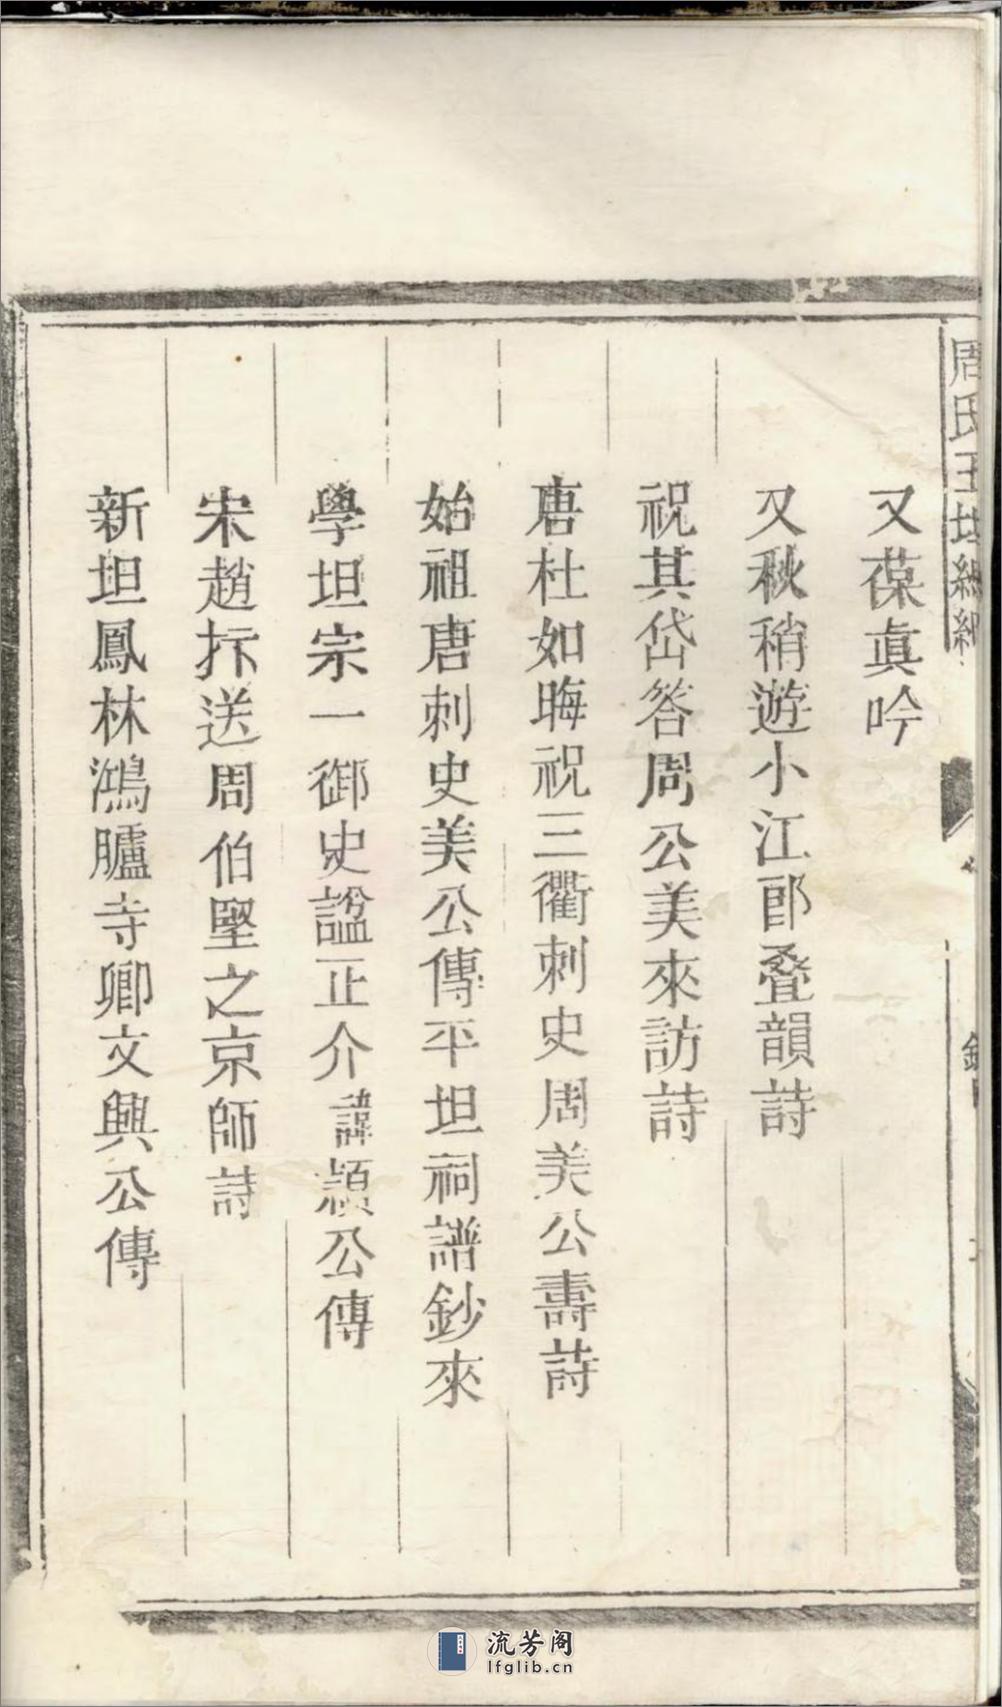 又葆眞吟
又秋稍遊小江郎叠韻詩
祝其岱答周公美來訪詩
唐杜如晦祝三衢刺史周美公壽詩
始祖唐刺史美公傳平坦祠譜鈔來
學坦宗一御史諡正介諱穎公傳
宋趙抃送周伯堅之京師詩
新坦鳳林鴻臚寺卿文興公傳
周氏
流芳阁
lfglib.cn